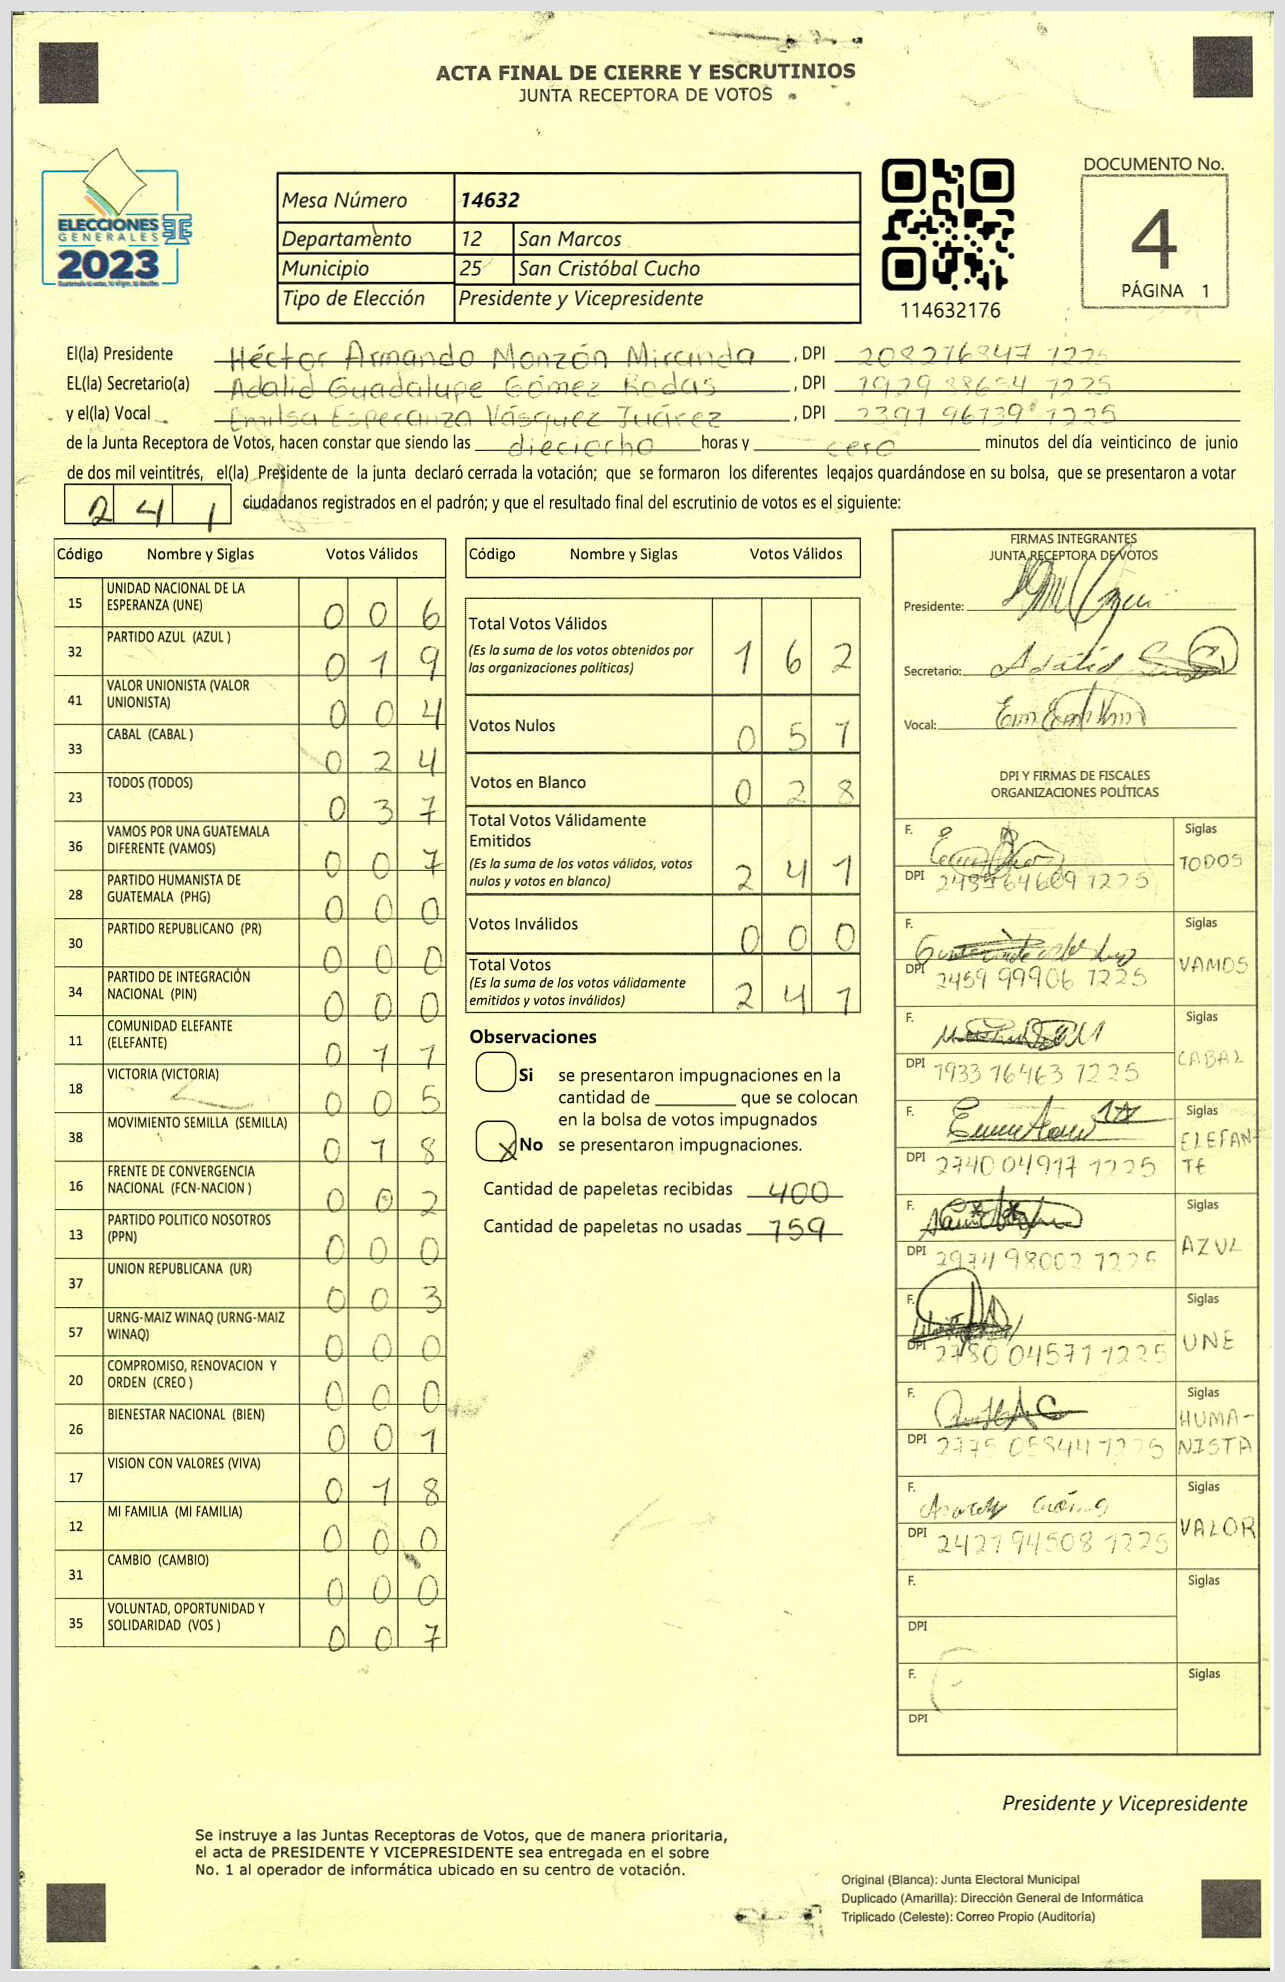 ACTA FINAL DE CIERRE Y ESCRUTINIOS
JUNTA RECEPTORA DE VOTOS
ELECCIONES
GENERALES
2023
Mesa Número 14632
Departamento 12 San Marcos
Municipio 25 San Cristóbal Cucho
Tipo de Elección Presidente y Vicepresidente
114632176
DOCUMENTO No.
4
PÁGINA 1
El(la) Presidente Héctor Armando Monzón Miranda, DPI
EL(la) Secretario(a) Adalid Guadalupe Gómez Rodas, DPI
y el(la) Vocal Emilsa Esperanza Vásquez Juárez, DPI
de la Junta Receptora de Votos, hacen constar que siendo las dieciocho horas y cero minutos del día veinticinco de junio
de dos mil veintitrés, el(la) Presidente de la junta declaró cerrada la votación; que se formaron los diferentes legajos guardándose en su bolsa, que se presentaron a votar
241 ciudadanos registrados en el padrón; y que el resultado final del escrutinio de votos es el siguiente:
Código Nombre y Siglas Votos Válidos
15 UNIDAD NACIONAL DE LA
ESPERANZA (UNE) 006
32 PARTIDO AZUL (AZUL ) 019
41 VALOR UNIONISTA (VALOR
UNIONISTA) 004
33 CABAL (CABAL ) 024
23 TODOS (TODOS) 037
36 VAMOS POR UNA GUATEMALA
DIFERENTE (VAMOS) 007
28 PARTIDO HUMANISTA DE
GUATEMALA (PHG) 000
30 PARTIDO REPUBLICANO (PR) 000
34 PARTIDO DE INTEGRACIÓN
NACIONAL (PIN) 000
11 COMUNIDAD ELEFANTE
(ELEFANTE) 011
18 VICTORIA (VICTORIA) 005
38 MOVIMIENTO SEMILLA (SEMILLA) 018
16 FRENTE DE CONVERGENCIA
NACIONAL (FCN-NACION ) 002
13 PARTIDO POLITICO NOSOTROS
(PPN) 000
37 UNION REPUBLICANA (UR) 003
57 URNG-MAIZ WINAQ (URNG-MAIZ
WINAQ) 000
20 COMPROMISO, RENOVACION Y
ORDEN (CREO ) 000
26 BIENESTAR NACIONAL (BIEN) 001
17 VISION CON VALORES (VIVA) 018
12 MI FAMILIA (MI FAMILIA) 000
31 CAMBIO (CAMBIO) 000
35 VOLUNTAD, OPORTUNIDAD Y
SOLIDARIDAD (VOS ) 007
Código Nombre y Siglas Votos Válidos
Total Votos Válidos
(Es la suma de los votos obtenidos por
las organizaciones políticas) 162
Votos Nulos 051
Votos en Blanco 028
Total Votos Válidamente
Emitidos
(Es la suma de los votos válidos, votos
nulos y votos en blanco) 241
Votos Inválidos 000
Total Votos
(Es la suma de los votos válidamente
emitidos y votos inválidos) 241
Observaciones
Si se presentaron impugnaciones en la
cantidad de ________ que se colocan
en la bolsa de votos impugnados
X No se presentaron impugnaciones.
Cantidad de papeletas recibidas 400
Cantidad de papeletas no usadas 159
FIRMAS INTEGRANTES
JUNTA RECEPTORA DE VOTOS
Presidente:
Secretario: Adalid
Vocal:
DPI Y FIRMAS DE FISCALES
ORGANIZACIONES POLÍTICAS
F. Siglas
TODOS
DPI
F. Siglas
VAMOS
DPI 2459 99906 1225
F. Siglas
CABAL
DPI 1933 16463 1225
F. Siglas
ELEFAN-
TE
DPI 2740 04917 1225
F. Siglas
AZUL
DPI 2974 98002 1225
F. Siglas
UNE
DPI 2780 04571 1225
F. Siglas
HUMA-
NISTA
DPI 2775 05844 1225
F. Siglas
VALOR
DPI 2421 94508 1225
F. Siglas
DPI
F. Siglas
DPI
Presidente y Vicepresidente
Se instruye a las Juntas Receptoras de Votos, que de manera prioritaria,
el acta de PRESIDENTE Y VICEPRESIDENTE sea entregada en el sobre
No. 1 al operador de informática ubicado en su centro de votación.
Original (Blanca): Junta Electoral Municipal
Duplicado (Amarilla): Dirección General de Informática
Triplicado (Celeste): Correo Propio (Auditoría)